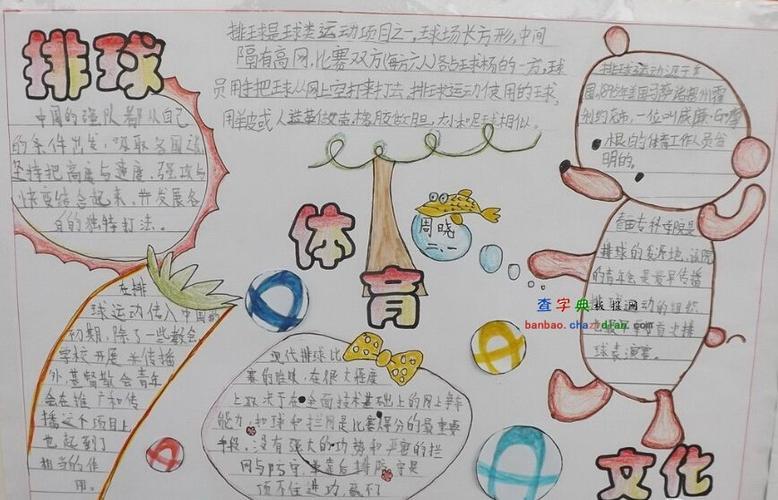 排球
排球是球类运动项目之一,球场长方形,中间
隔有高网,比赛双方(每方六人)各占球场的一方,球
员用手把球从网上空打来打去。排球运动使用的球,
用羊皮或人造革做壳,橡胶做胆,大小和足球相似。
中国的强队都从自己
的条件出发,吸取各国
坚持把高度与速度,强攻与
快变结合起来,并发展各
自的独特打法。
体育
周晓
二.一
排球运动源于美
国,1895年美国马萨诸塞州霍
利约克市,一位叫威廉·
根的体育工作人员
明的。
春田专科学院是
排球的发源地,该院
的青年会是最早传播
排球运动的组织
球表演赛。
查字典板报网
banbao.chazidian.com
在排
球运动传入中国
初期,除了一些教会
学校开展并传播
外,基督教会青年
会在推广和传
播这个项目上
也起到了
相当的作
用。
现代排球比
赛的胜负,在很大程度
上取决于在全面技术基础上的网上争夺
能力,扣球和拦网是比赛得分的最重要
手段。没有强大的攻势和严密的拦
网与防守,
顶不住进攻,赢不了
文化